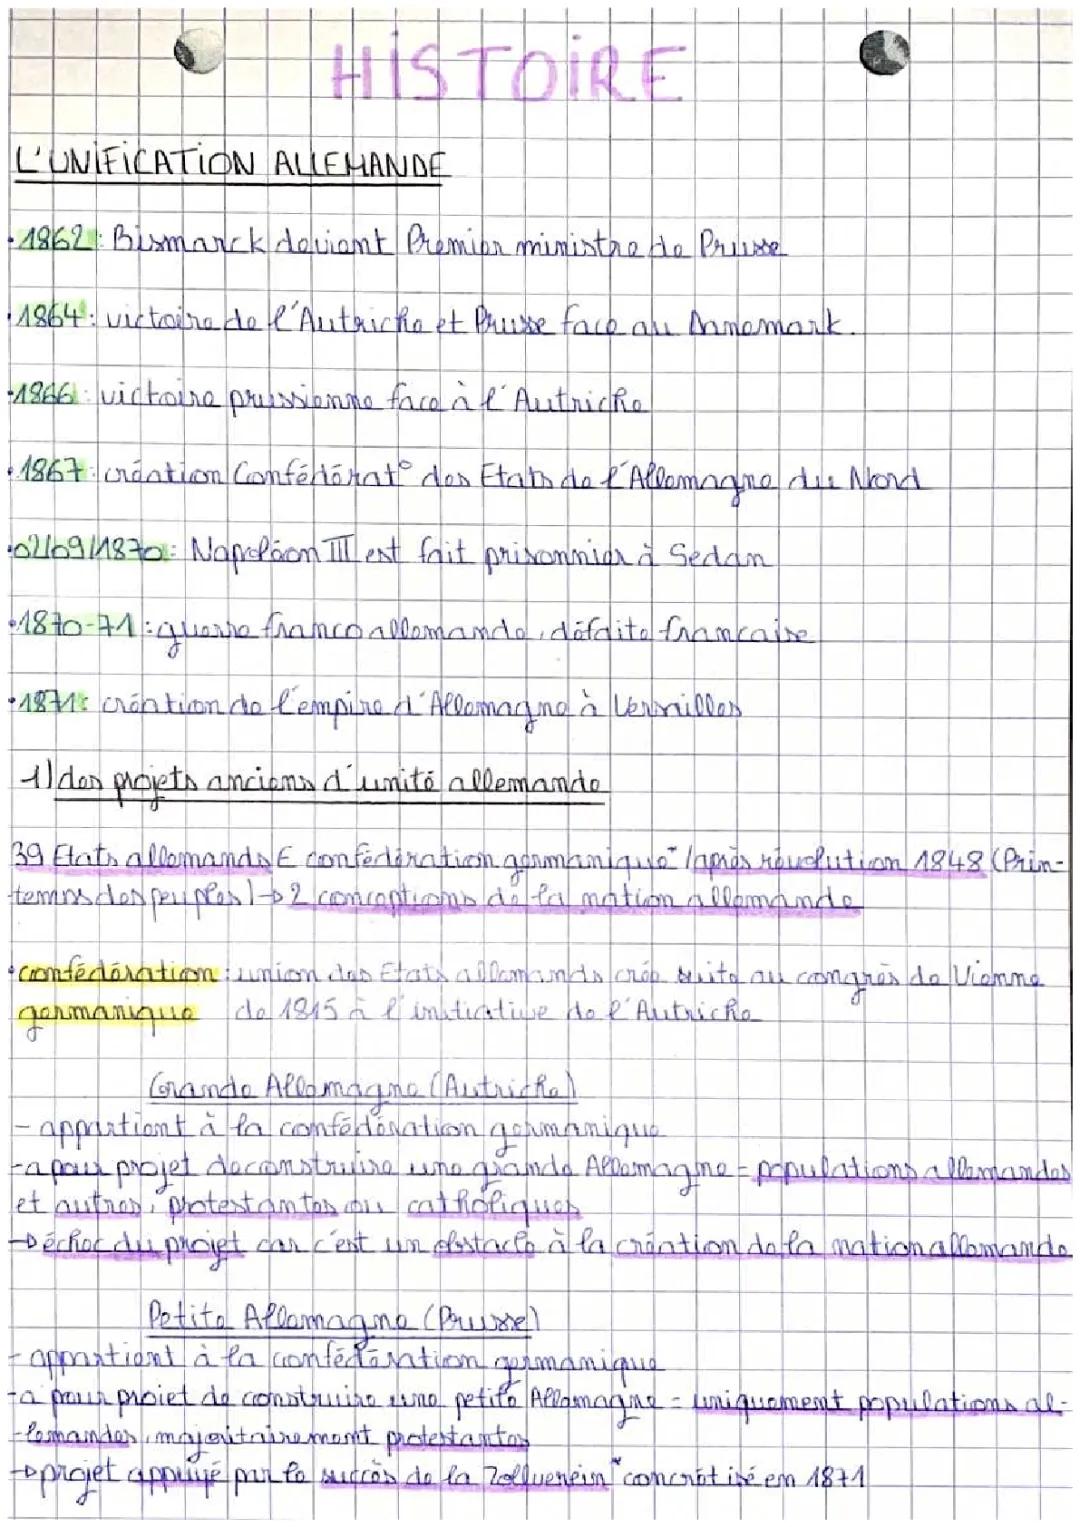 HISTOIRE
L'UNIFICATION ALLEMANDE
• 1862 : Bismarck devient Premier ministre de Prusse
• 1864 : victoire de l'Autriche et Prusse face au Danemark.
• 1866 : victoire prussienne face à l'Autriche
• 1867 : création Confédérat° des Etats de l'Allemagne du Nord
• 02/09/1870 : Napoléon III est fait prisonnier à Sedan
• 1870-71 : guerre franco allemande, défaite française
• 1871 : création de l'empire d'Allemagne à Versailles
1) des projets anciens d'unité allemande
39 Etats allemands E confédération germanique* / après révolution 1848 (Prin-
temps des peuples) → 2 conceptions de la nation allemande
• confédération : union des Etats allemands crée suite au congrès de Vienne
germanique de 1815 à l'initiative de l'Autriche
Grande Allemagne (Autriche)
- appartient à la confédération germanique
- a pour projet de construire une grande Allemagne = populations allemandes
et autres, protestantes ou catholiques
→ échec du projet car c'est un obstacle à la création de la nation allemande
Petite Allemagne (Prusse)
- appartient à la confédération germanique
- a pour projet de construire une petite Allemagne = uniquement populations al-
lemandes, majoritairement protestantes
→ projet appuyé par le succès de la Zollverein* concrétisé en 1871